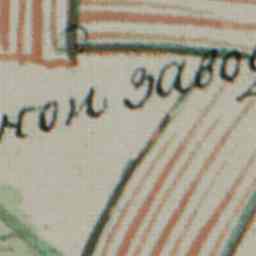 нои завод